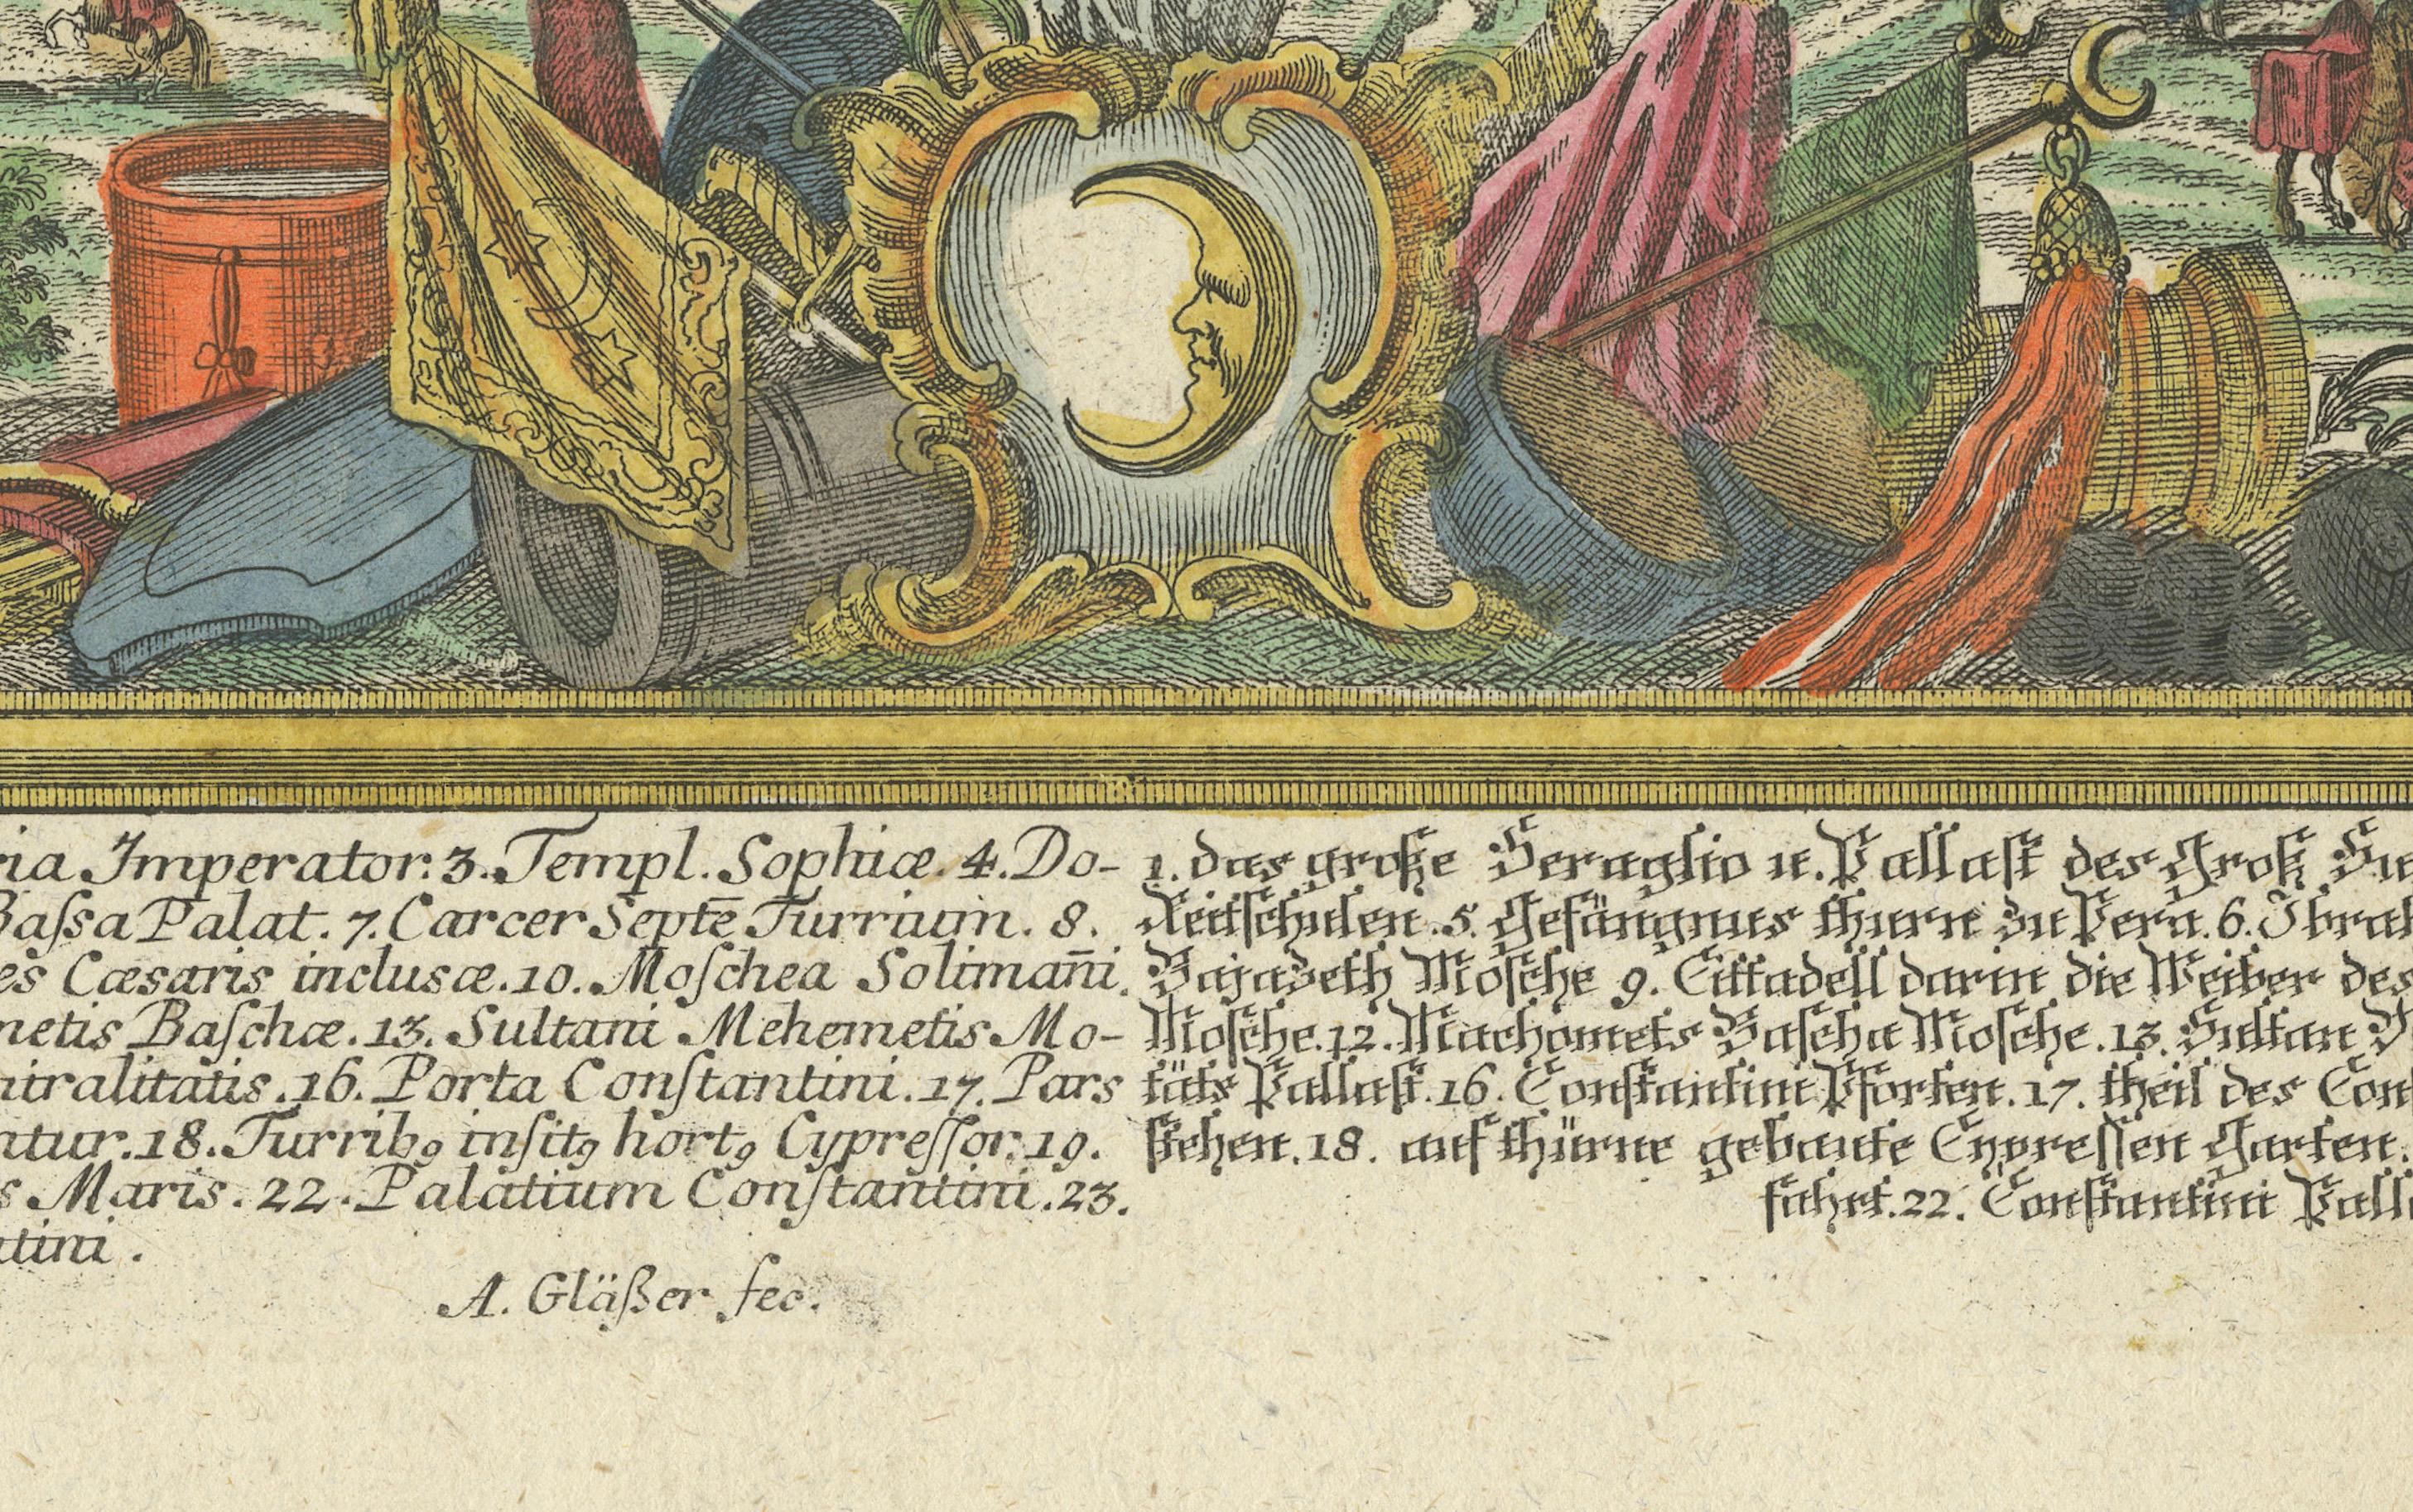 ria Imperator. 3. Templ. Sophiæ. 4. Do-
Baſsa Palat. 7. Carcer Septē Turrium. 8.
es Cæsaris inclusæ. 10. Moſchea Solimañi.
metis Baſchæ. 13. Sultani Mehemetis Mo-
niralitatis. 16. Porta Conſtantini. 17. Pars
ntur. 18. Turribꝰ inſitꝰ hortꝰ Cypreſſor. 19.
s Maris. 22. Palatium Conſtantini. 23.
tini.
A. Gläßer fec.
1. das große Seraglio u. Pallaſt des Groß Su
Reitſchulen. 5. Gefängnus thurn zu Pera. 6. Ibrah
Bajazeth Moſche 9. Cittadell darin die Weiber des
Moſche. 12. Machomets Baſcha Moſche. 13. Sultan
täts Pallaſt. 16. Conſtantini Pforten. 17. theil des Con
ſtehen. 18. auf thürne gebaute Cypreſſen Garten.
fahrt. 22. Conſtantini Palla